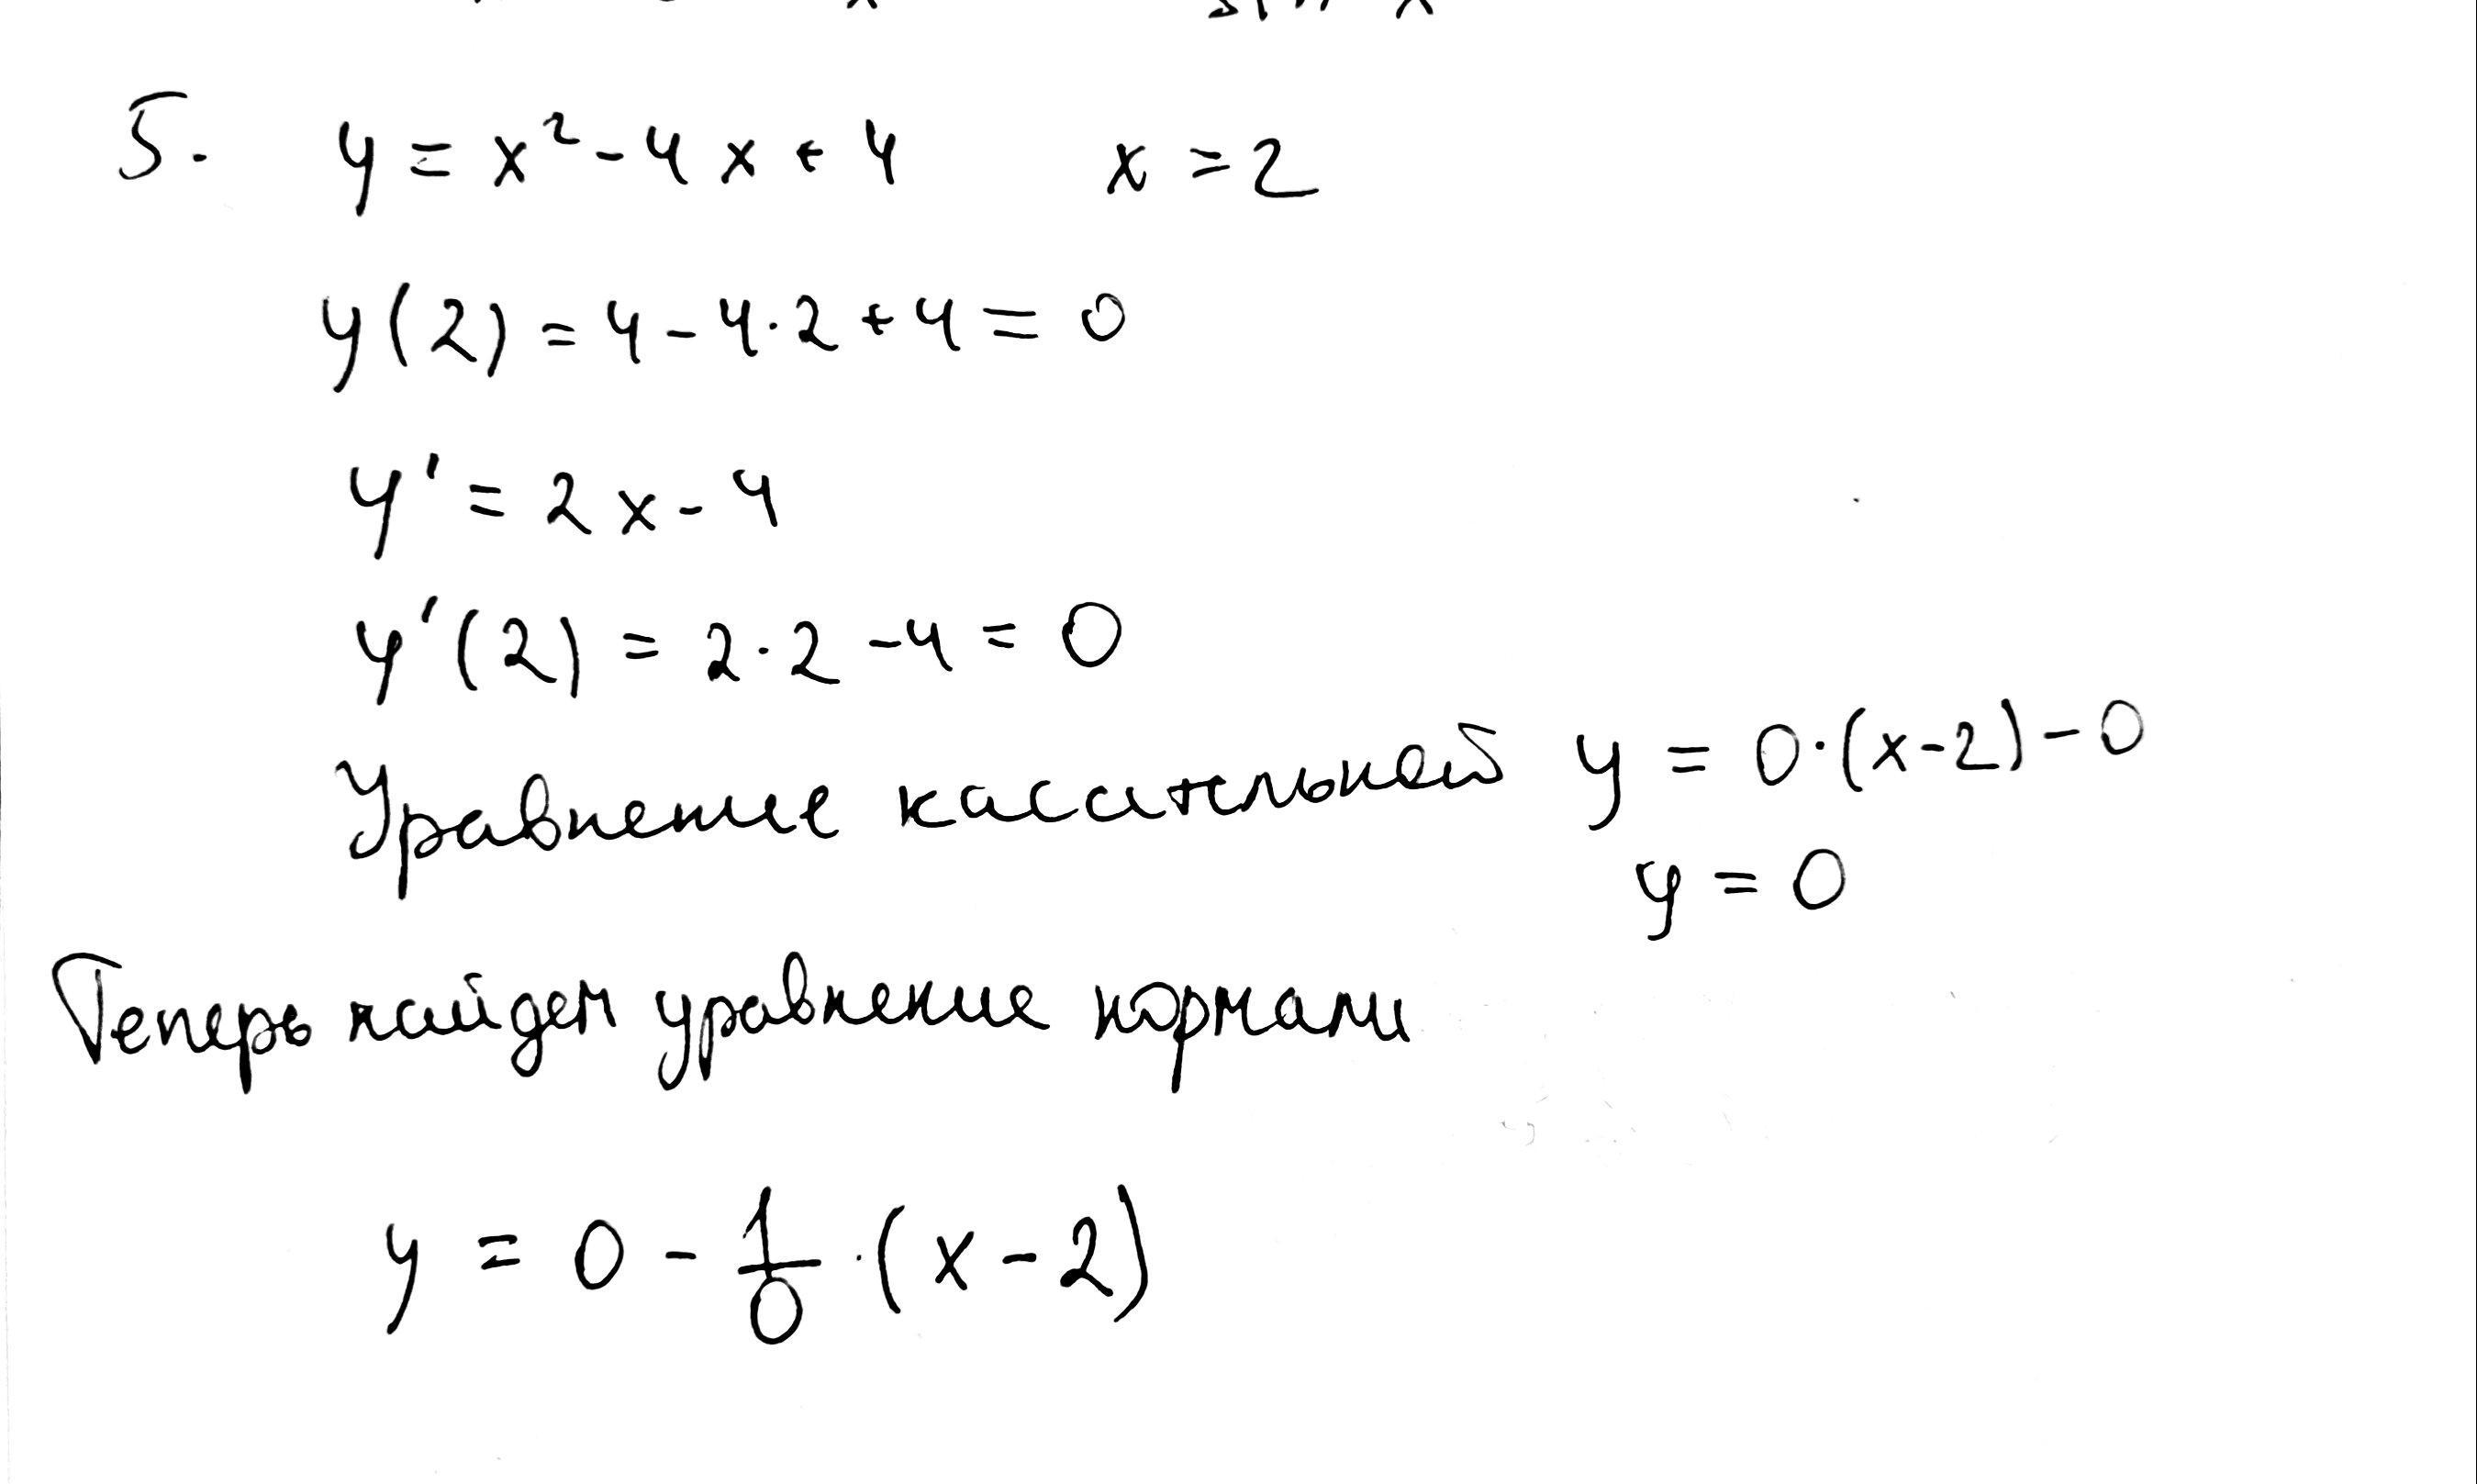 5. y = x² - 4x + 4 x = 2
y(2) = 4 - 4·2 + 4 = 0
y' = 2x - 4
y'(2) = 2·2 - 4 = 0
Уравнение касательной y = 0·(x-2) - 0
y = 0
Теперь найдем уравнение нормали
y = 0 - 1/0 ·(x - 2)